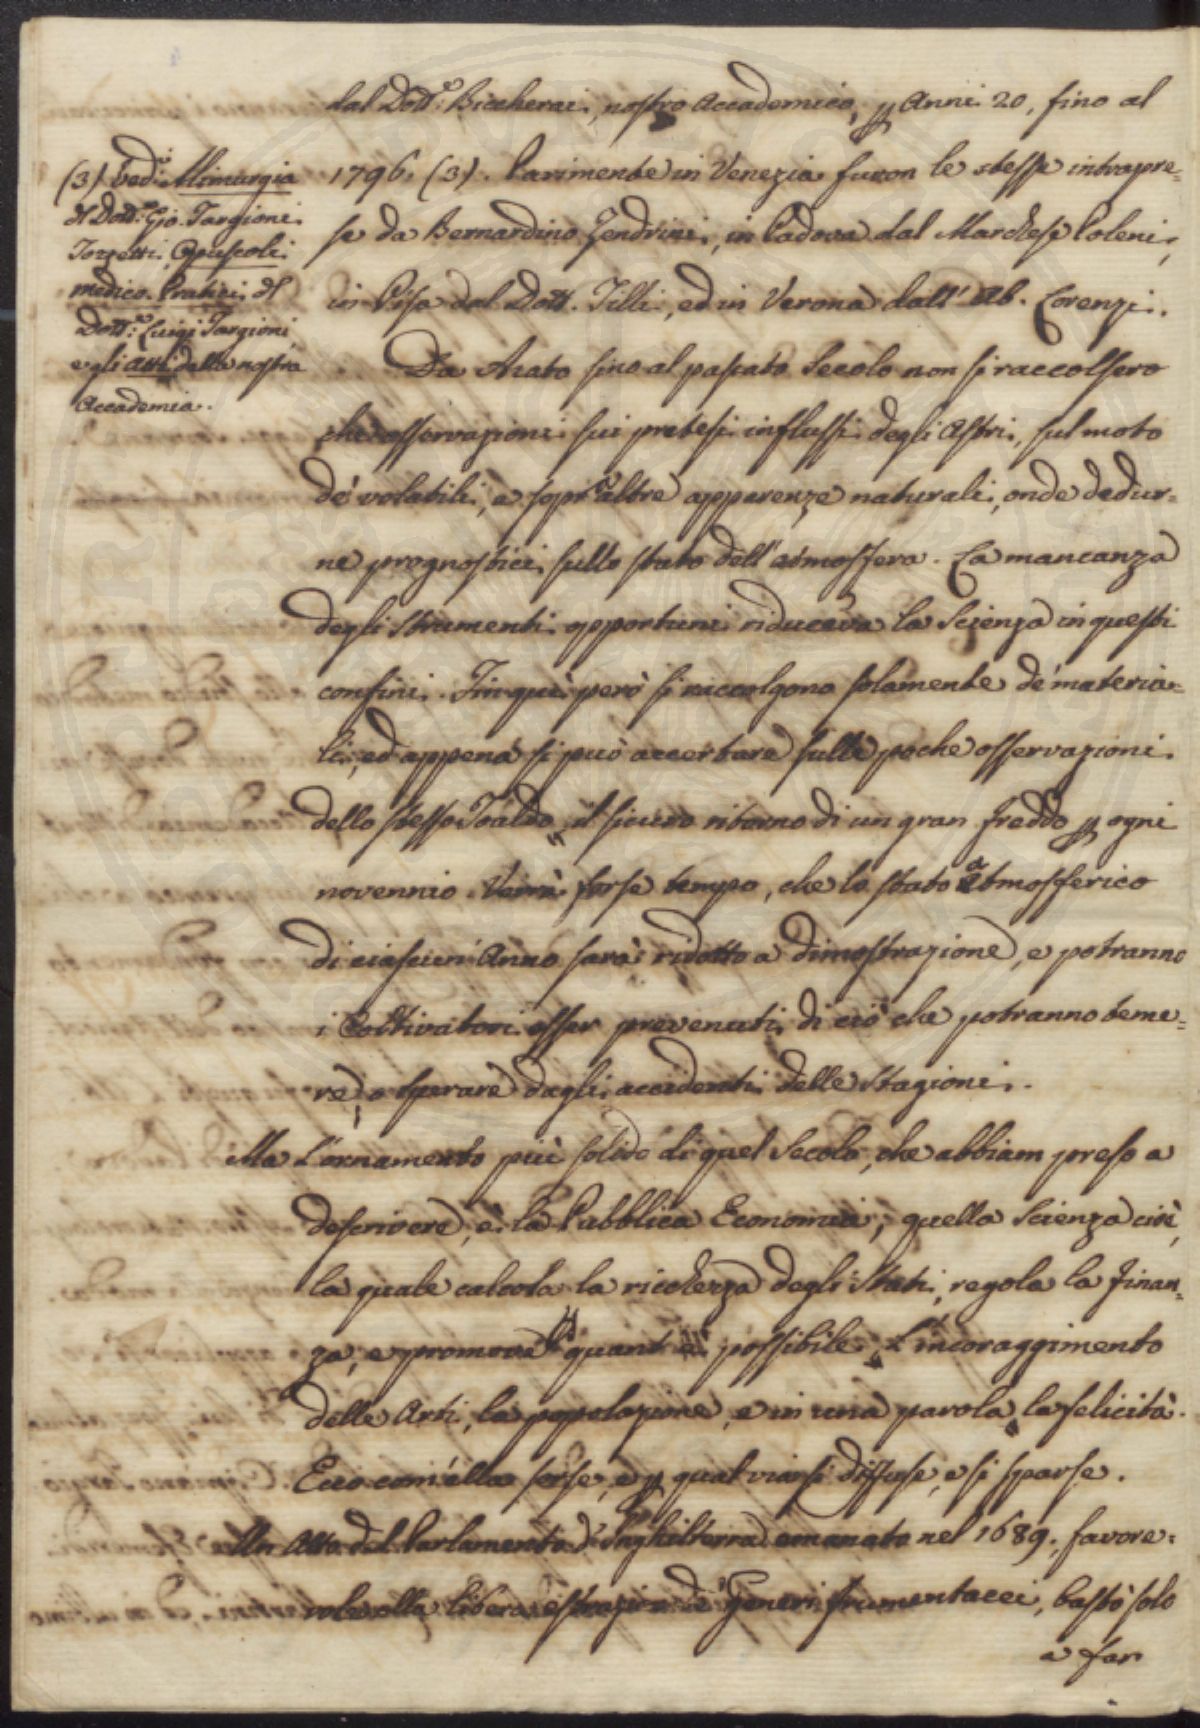 dal Dott.e Biccherai, nostro Accademico, p Anni 20, fino al
1796. (3). Parimente in Venezia furon le stesse intrapre=
se da Bernardino Zendrini, in Padova dal Marchese Poleni,
in Pisa dal Dott. Tilli, ed in Verona dall' Ab. Lorenzi.
(3) Ved.i Alimurgia
del Dott.e Gio. Targioni
Tozzetti, Opuscoli
medico-Pratici del
Dott.e Luigi Targioni,
e gli atti della nostra
Accademia.
Da Arato sino al passato Secolo non si raccolsero
che osservazioni sui pretesi influssi degli Astri, sul moto
de' volatili, e sopra altre apparenze naturali, onde dedur=
ne prognostici sullo stato dell' atmosfera. La mancanza
degli strumenti opportuni riduceva la Scienza in questi
confini. Fin qui però si raccolgono solamente de' materia=
li, ed appena si può accertare sulle poche osservazioni
dello stesso Toaldo il sicuro ritorno di un gran freddo p ogni
novennio. Verrà forse tempo, che lo stato atmosferico
di ciascun Anno sarà ridotto a dimostrazione, e potranno
i Coltivatori esser prevenuti di ciò che potranno teme=
re, o sperare dagli accidenti delle Stagioni.
Ma l'ornamento più solido di quel Secolo, che abbiam preso a
descrivere, è la Pubblica Economia; quella Scienza cioè,
la quale calcola la ricchezza degli Stati, regola la Finan=
za, e promove quant' è possibile l'incoraggimento
delle Arti, la popolazione, e in una parola la felicità.
Ecco com' ella sorse, e p qual via si diffuse, e si sparse.
Un Atto del Parlamento d' Inghilterra emanato nel 1689., favore=
vole alla libera estrazion de' Generi frumentacei, bastò solo
a far